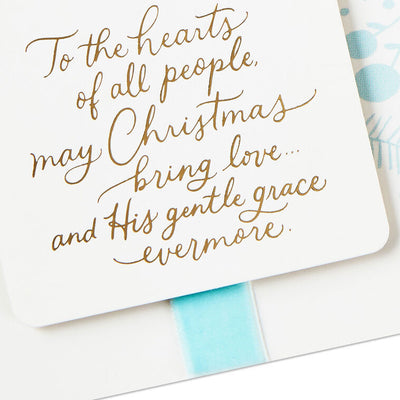 To the hearts
of all people,
may Christmas
bring love...
and His gentle grace
evermore.